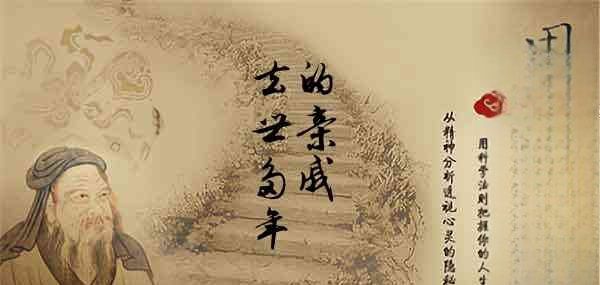 去世多年
的亲戚
从精神分析透视心灵的隐秘
用科学法则把握你的人生